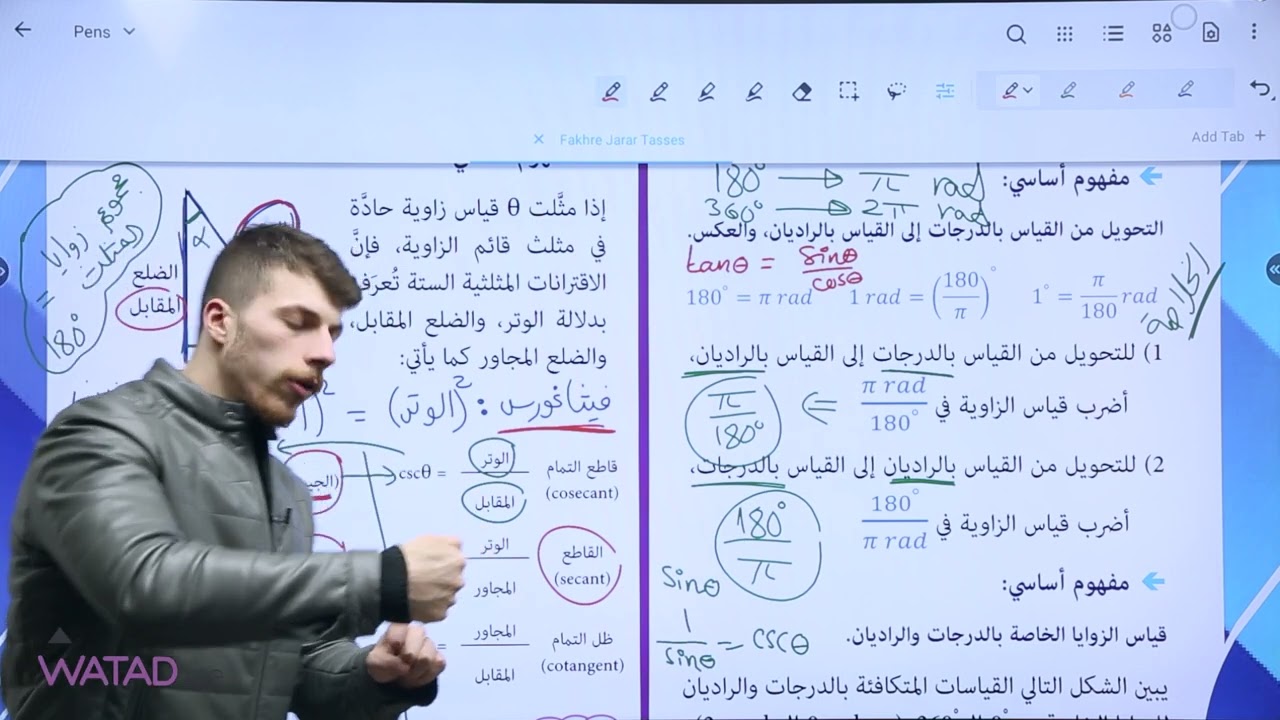 Pens
Fakhre Jarar Tasses
Add Tab +
مفهوم أساسي:
180° → π rad
360° → 2π rad
التحويل من القياس بالدرجات إلى القياس بالراديان، والعكس.
tanθ = sinθ / cosθ
180° = π rad
1 rad = (180/π)°
1° = π/180 rad
الخلاصة
1) للتحويل من القياس بالدرجات إلى القياس بالراديان،
أضرب قياس الزاوية في π rad / 180°
π / 180°
2) للتحويل من القياس بالراديان إلى القياس بالدرجات،
أضرب قياس الزاوية في 180° / π rad
180° / π
مفهوم أساسي:
sinθ
قياس الزوايا الخاصة بالدرجات والراديان.
1 / sinθ = cscθ
يبين الشكل التالي القياسات المتكافئة بالدرجات والراديان
مجموع زوايا
المثلث
=
180°
α
الضلع
المقابل
إذا مثَّلت θ قياس زاوية حادَّة
في مثلث قائم الزاوية، فإنَّ
الاقترانات المثلثية الستة تُعرَف
بدلالة الوتر، والضلع المقابل،
والضلع المجاور كما يأتي:
فيثاغورس : (الوتر)² =
قاطع التمام
(cosecant)
cscθ = الوتر / المقابل
القاطع
(secant)
الوتر / المجاور
ظل التمام
(cotangent)
= المجاور / المقابل
WATAD